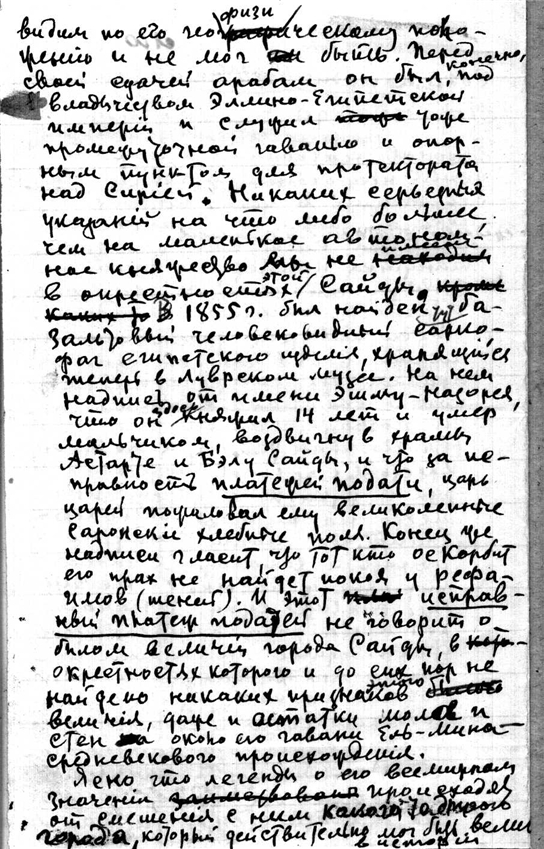 физи
видим по его географическому поло-
жению и не мог быть. Перед
своей сдачей арабам он был, конечно, под
владычеством Эллино-Египетской
империи и служил тоже
промежуточной гаванью и опор-
ным пунктом для протектората
над Сирией. Никаких серьезных
указаний на что либо больше
чем на маленькое автоном-
ное княжество мы не имеем
в окрестностях этой Сайды, кроме
каких то В 1855 г. был найден тут ба-
зальтовый человековидный сарко-
фаг египетского изделия, хранящийся
теперь в Луврском музее. На нем
надпись от имени Эшму-Назорея,
что он здесь княжил 14 лет и умер
мальчиком, воздвигнув храмы
Астарте и Бэлу Сайды, и что за не-
правность платежей подати, царь
царей пожаловал ему великолепные
Саронские хлебные поля. Конец же
надписи гласит, что тот кто оскорбит
его прах не найдет покоя у рефа-
имов (теней). И этот исправ-
ный платеж податей не говорит о
былом величии города Сайды, в
окрестностях которого и до сих пор не
найдено никаких признаков этого былого
величия, даже и остатки молов и
стен около его гавани Ель-Мина-
средневекового происхождения.
Ясно что легенды о его всемирном
значении заимствования происходят
от смешения с ним какого то другого
города, который действительно мог быть велик
в истории